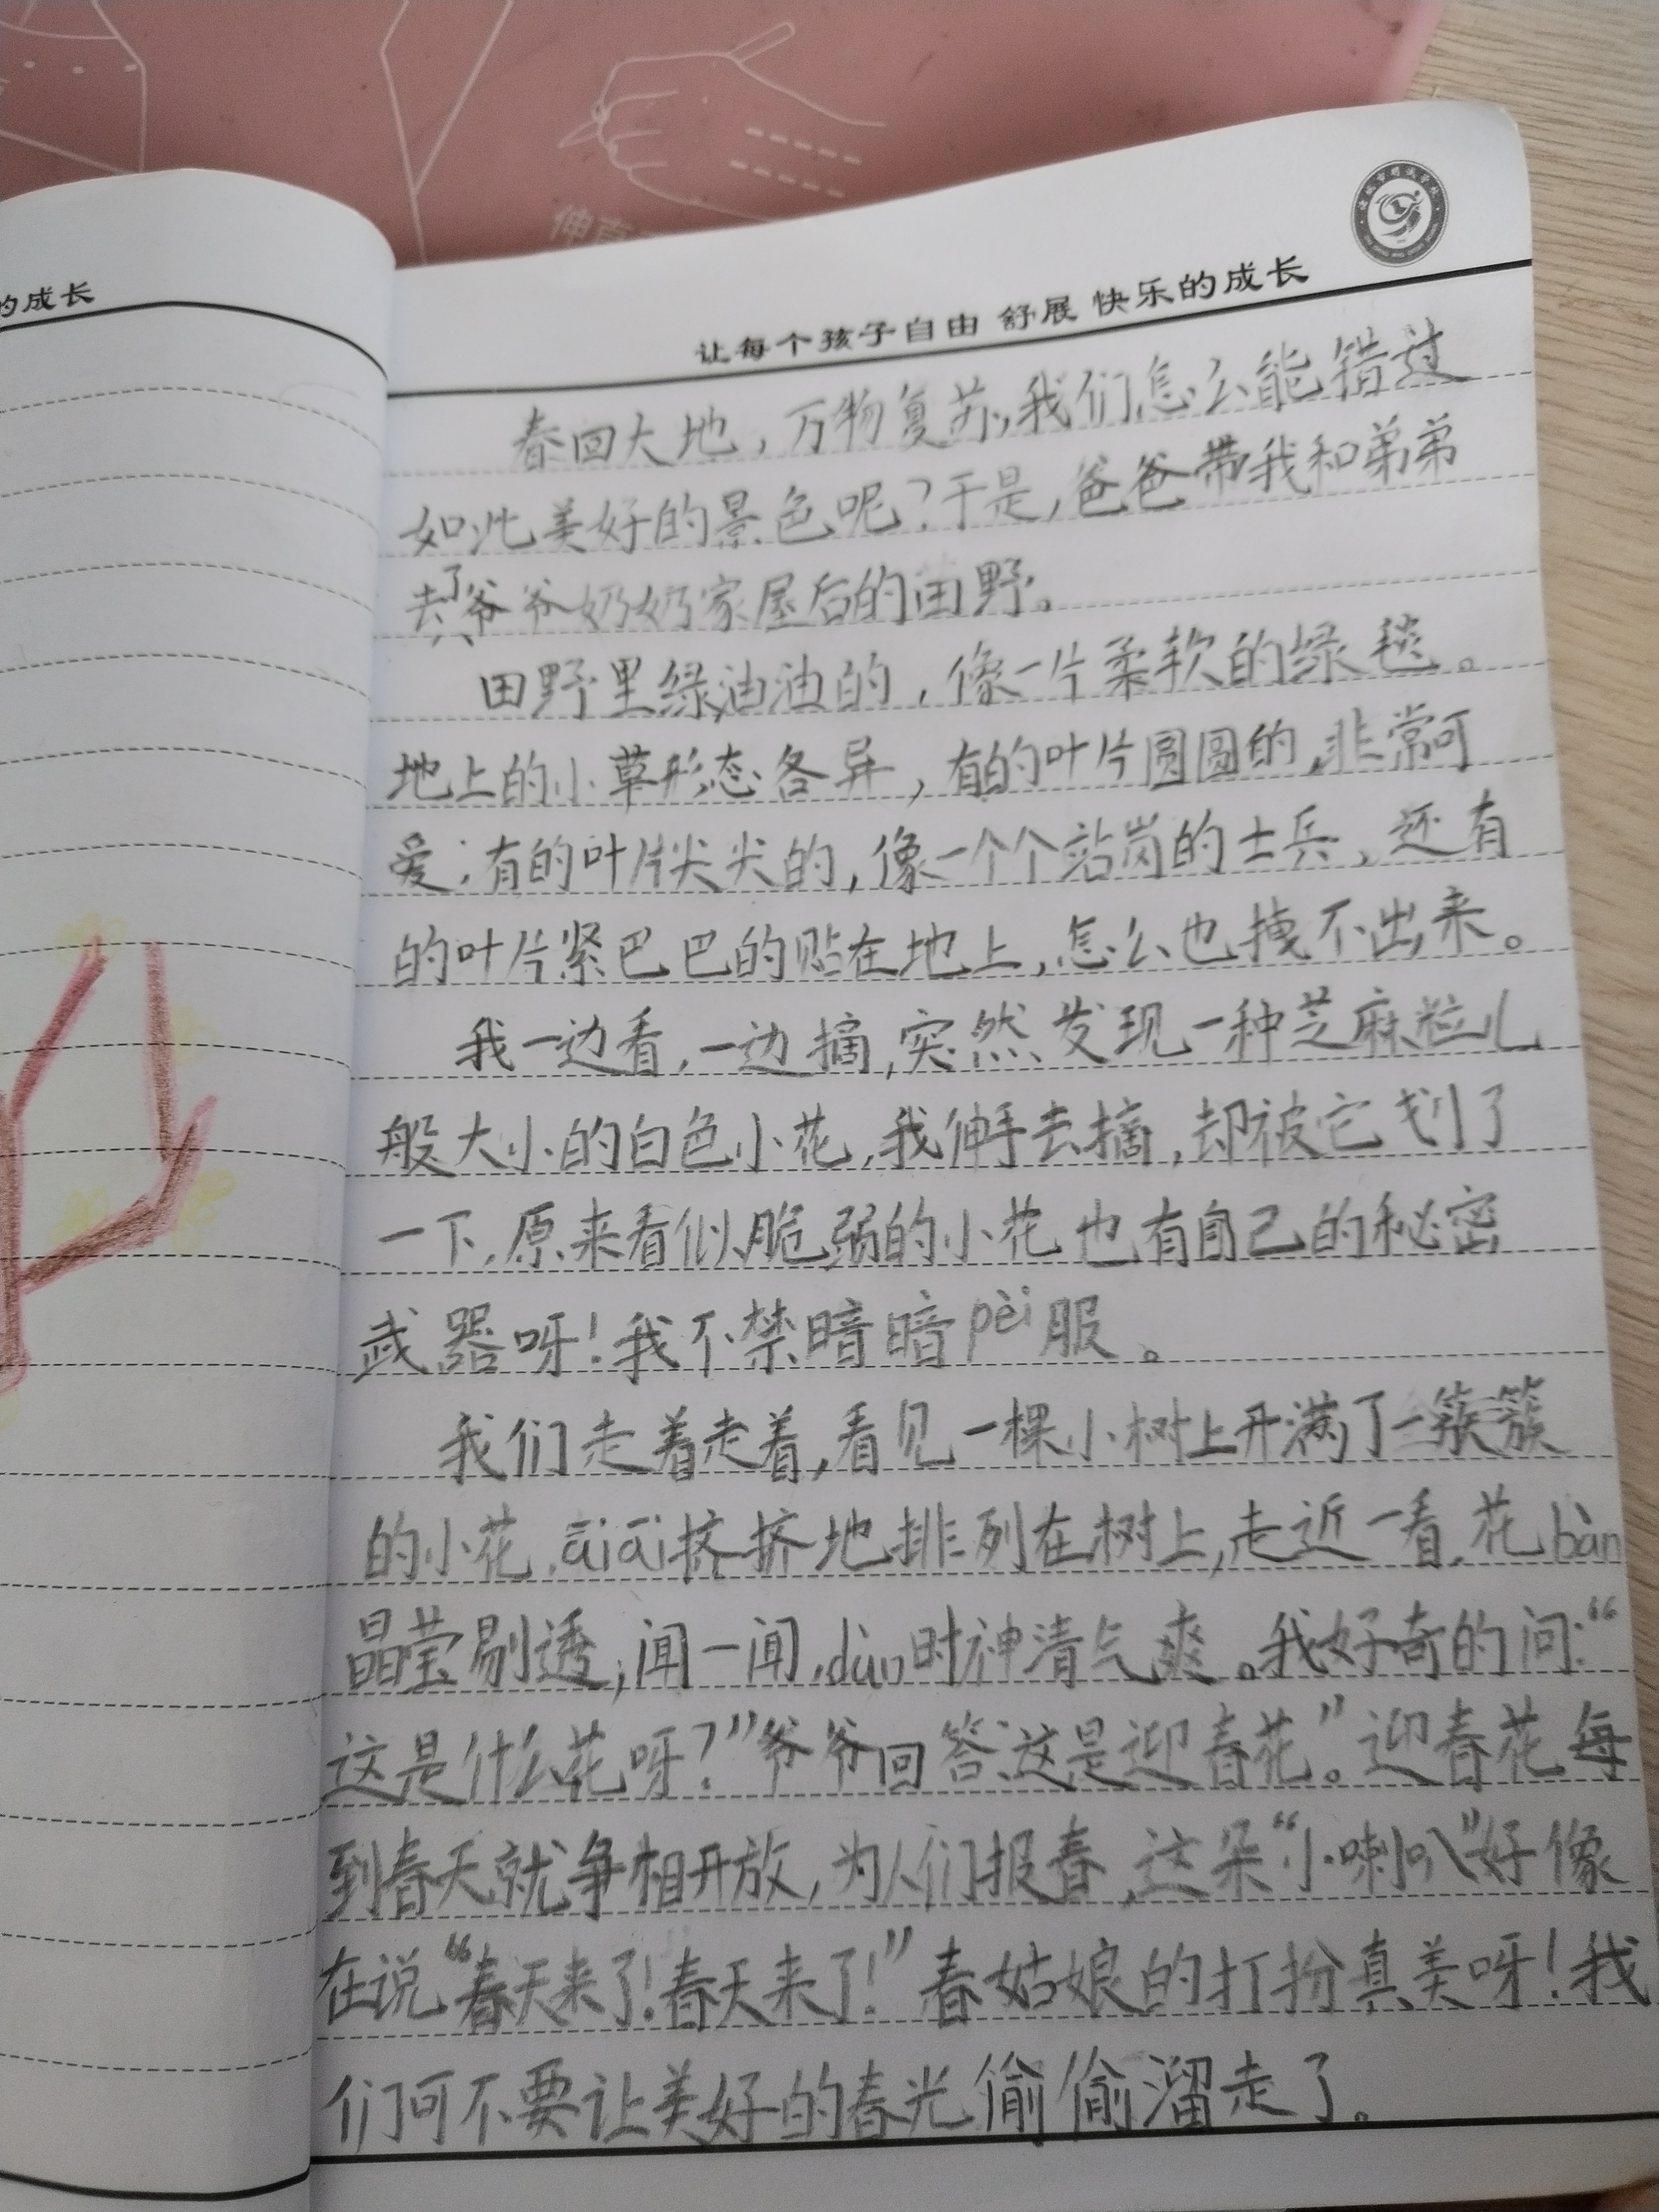 伸直
的成长
让每个孩子自由 舒展 快乐的成长
春回大地，万物复苏，我们怎么能错过
如此美好的景色呢？于是，爸爸带我和弟弟
去了爷爷奶奶家屋后的田野。
田野里绿油油的，像一片柔软的绿毯。
地上的小草形态各异，有的叶片圆圆的，非常可
爱；有的叶片尖尖的，像一个个站岗的士兵，还有
的叶片紧巴巴的贴在地上，怎么也拽不出来。
我一边看，一边摘，突然发现一种芝麻粒儿
般大小的白色小花，我伸手去摘，却被它划了
一下，原来看似脆弱的小花也有自己的秘密
武器呀！我不禁暗暗pèi服。
我们走着走着，看见一棵小树上开满了一簇簇
的小花，āiāi挤挤地排列在树上，走近一看，花bàn
晶莹剔透，闻一闻，dùn时神清气爽。我好奇的问：“
这是什么花呀？”爷爷回答：这是迎春花”。迎春花每
到春天就争相开放，为人们报春，这朵“小喇叭”好像
在说“春天来了！春天来了！”春姑娘的打扮真美呀！我
们可不要让美好的春光偷偷溜走了。